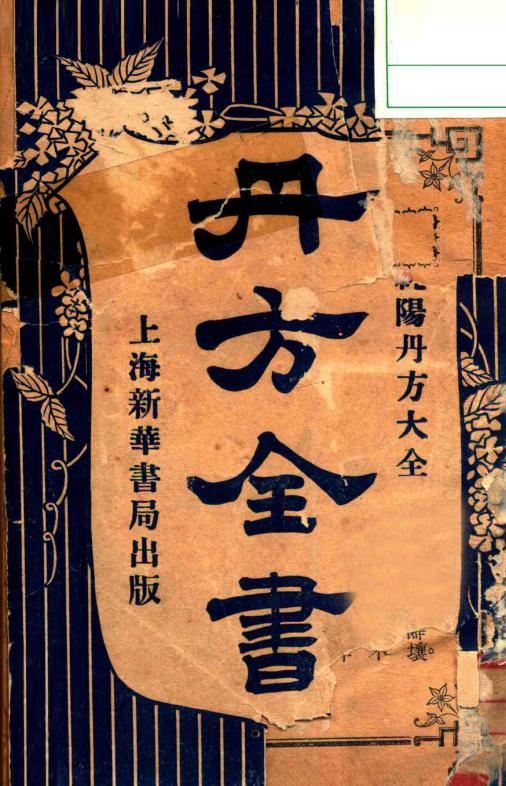 陽丹方大全
丹方全書
上海新華書局出版
壞。